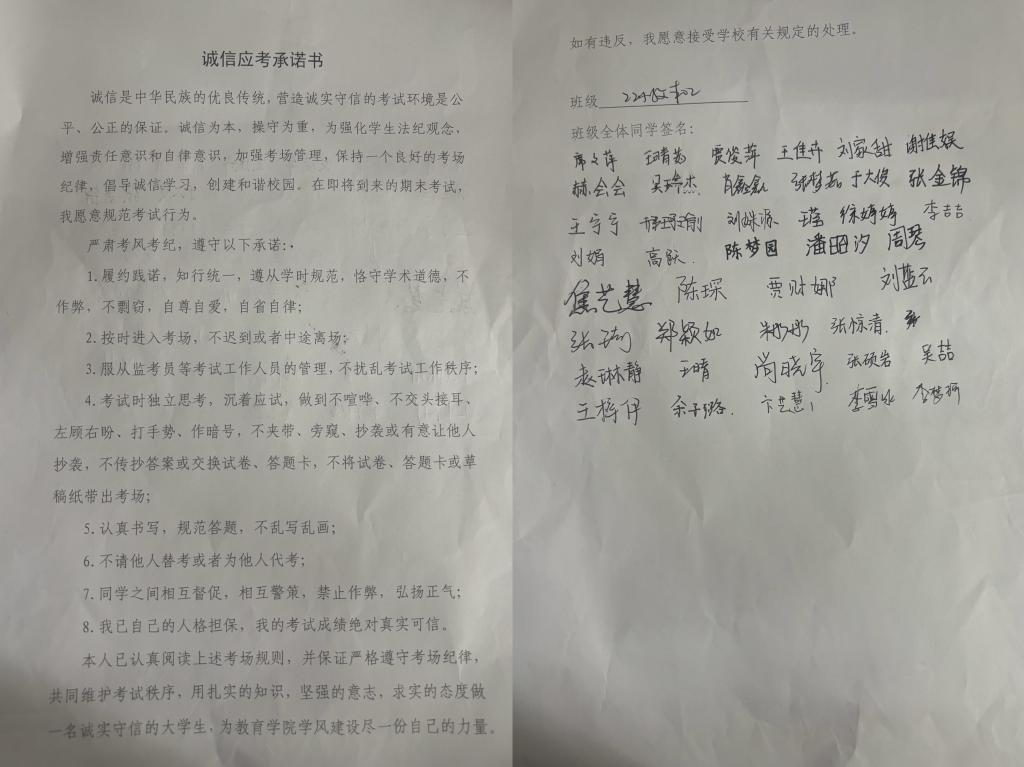 诚信应考承诺书
诚信是中华民族的优良传统，营造诚实守信的考试环境是公
平、公正的保证。诚信为本，操守为重，为强化学生法纪观念，
增强责任意识和自律意识，加强考场管理，保持一个良好的考场
纪律，倡导诚信学习，创建和谐校园。在即将到来的期末考试，
我愿意规范考试行为。
严肃考风考纪，遵守以下承诺：
1.履约践诺，知行统一，遵从学时规范，恪守学术道德，不
作弊，不剽窃，自尊自爱，自省自律；
2.按时进入考场，不迟到或者中途离场；
3.服从监考员等考试工作人员的管理，不扰乱考试工作秩序；
4.考试时独立思考，沉着应试，做到不喧哗、不交头接耳、
左顾右盼、打手势、作暗号，不夹带、旁窥、抄袭或有意让他人
抄袭，不传抄答案或交换试卷、答题卡，不将试卷、答题卡或草
稿纸带出考场；
5.认真书写，规范答题，不乱写乱画；
6.不请他人替考或者为他人代考；
7.同学之间相互督促，相互警策，禁止作弊，弘扬正气；
8.我已自己的人格担保，我的考试成绩绝对真实可信。
本人已认真阅读上述考场规则，并保证严格遵守考场纪律，
共同维护考试秩序，用扎实的知识，坚强的意志，求实的态度做
一名诚实守信的大学生，为教育学院学风建设尽一份自己的力量。
如有违反，我愿意接受学校有关规定的处理。
班级
班级全体同学签名：
贾俊萍 王佳卉 刘家甜 谢佳娱
赫会会 吴瑞杰 肖鑫鑫 于大俊 张金锦
王宁宁 刘姝源 徐婷婷 李喆
刘娟 高跃 陈梦园 潘昭汐 周琴
焦艺慧 陈琛 贾财娜 刘蓝云
张琦 郑颖如 张惊清
赵琳静 王晴 尚晓宇 张硕岩 吴喆
王梓伊 余子璐 卞芸慧 李雪冰 李梦珂